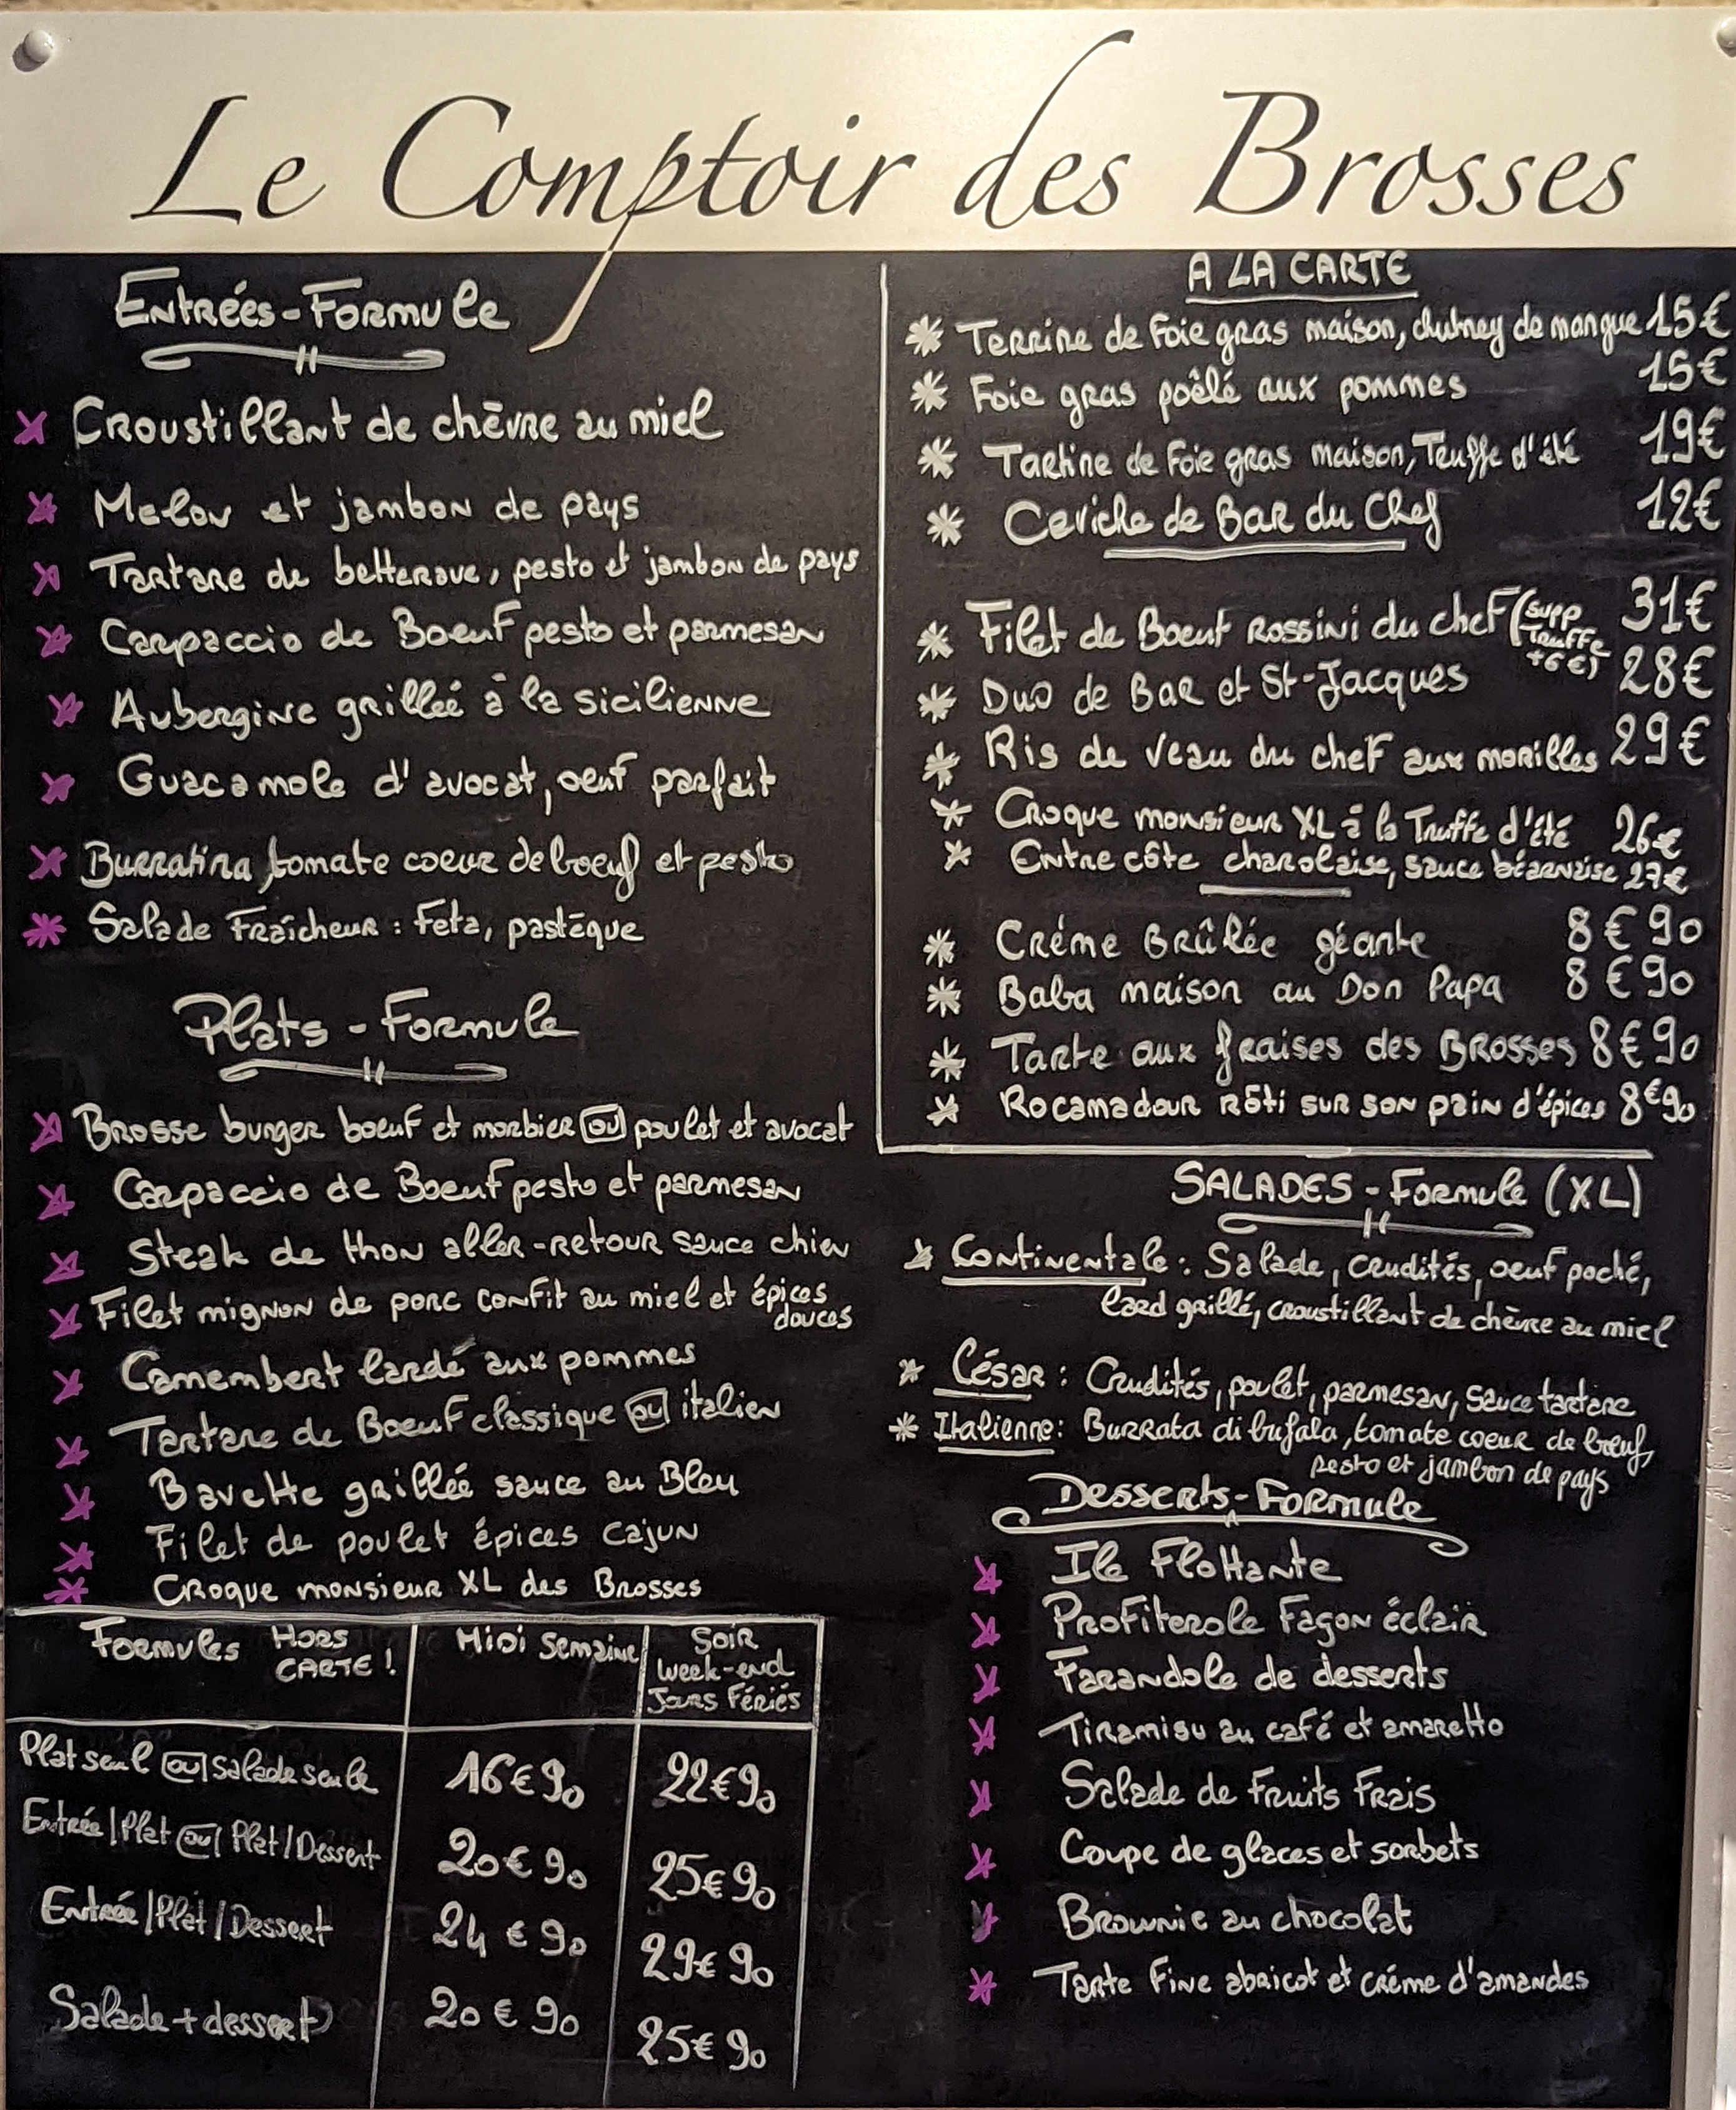 Le Comptoir des Brosses
Entrées-Formule
Croustillant de chèvre au miel
Melon et jambon de pays
Tartare de betterave, pesto et jambon de pays
Carpaccio de Boeuf pesto et parmesan
Aubergine grillée à la sicilienne
Guacamole d'avocat, oeuf parfait
Burratina, tomate coeur de boeuf et pesto
Salade Fraîcheur : Feta, pastèque
Plats - Formule
Brosse burger boeuf et morbier ou poulet et avocat
Carpaccio de Boeuf pesto et parmesan
Steak de thon aller-retour sauce chien
Filet mignon de porc confit au miel et épices
douces
Camembert lardé aux pommes
Tartare de Boeuf classique ou italien
Bavette grillée sauce au Bleu
Filet de poulet épices cajun
Croque monsieur XL des Brosses
Formules HORS CARTE ! Midi Semaine Soir week-end Jours Fériés
Plat seul ou salade seule 16€90 22€90
Entrée/Plat ou Plat/Dessert 20€90 25€90
Entrée/Plat/Dessert 24€90 29€90
Salade + dessert 20€90 25€90
A LA CARTE
Terrine de Foie gras maison, chutney de mangue 15€
Foie gras poêlé aux pommes 15€
Tartine de Foie gras maison, Truffe d'été 19€
Ceviche de Bar du Chef 12€
Filet de Boeuf Rossini du chef (supp Truffe +6€) 31€
Duo de Bar et St-Jacques 28€
Ris de veau du chef aux morilles 29€
Croque monsieur XL à la Truffe d'été 26€
Entre côte charolaise, sauce béarnaise 27€
Créme Brûlée géante 8€90
Baba maison au Don Papa 8€90
Tarte aux fraises des Brosses 8€90
Rocamadour rôti sur son pain d'épices 8€90
SALADES - Formule (XL)
Continentale : Salade, crudités, oeuf poché,
lard grillé, croustillant de chèvre au miel
César : Crudités, poulet, parmesan, sauce tartare
Italienne : Burrata di bufala, tomate coeur de boeuf,
pesto et jambon de pays
Desserts-Formule
Ile Flottante
Profiterole Façon éclair
Farandole de desserts
Tiramisu au café et amaretto
Salade de Fruits Frais
Coupe de glaces et sorbets
Brownie au chocolat
Tarte Fine abricot et créme d'amandes